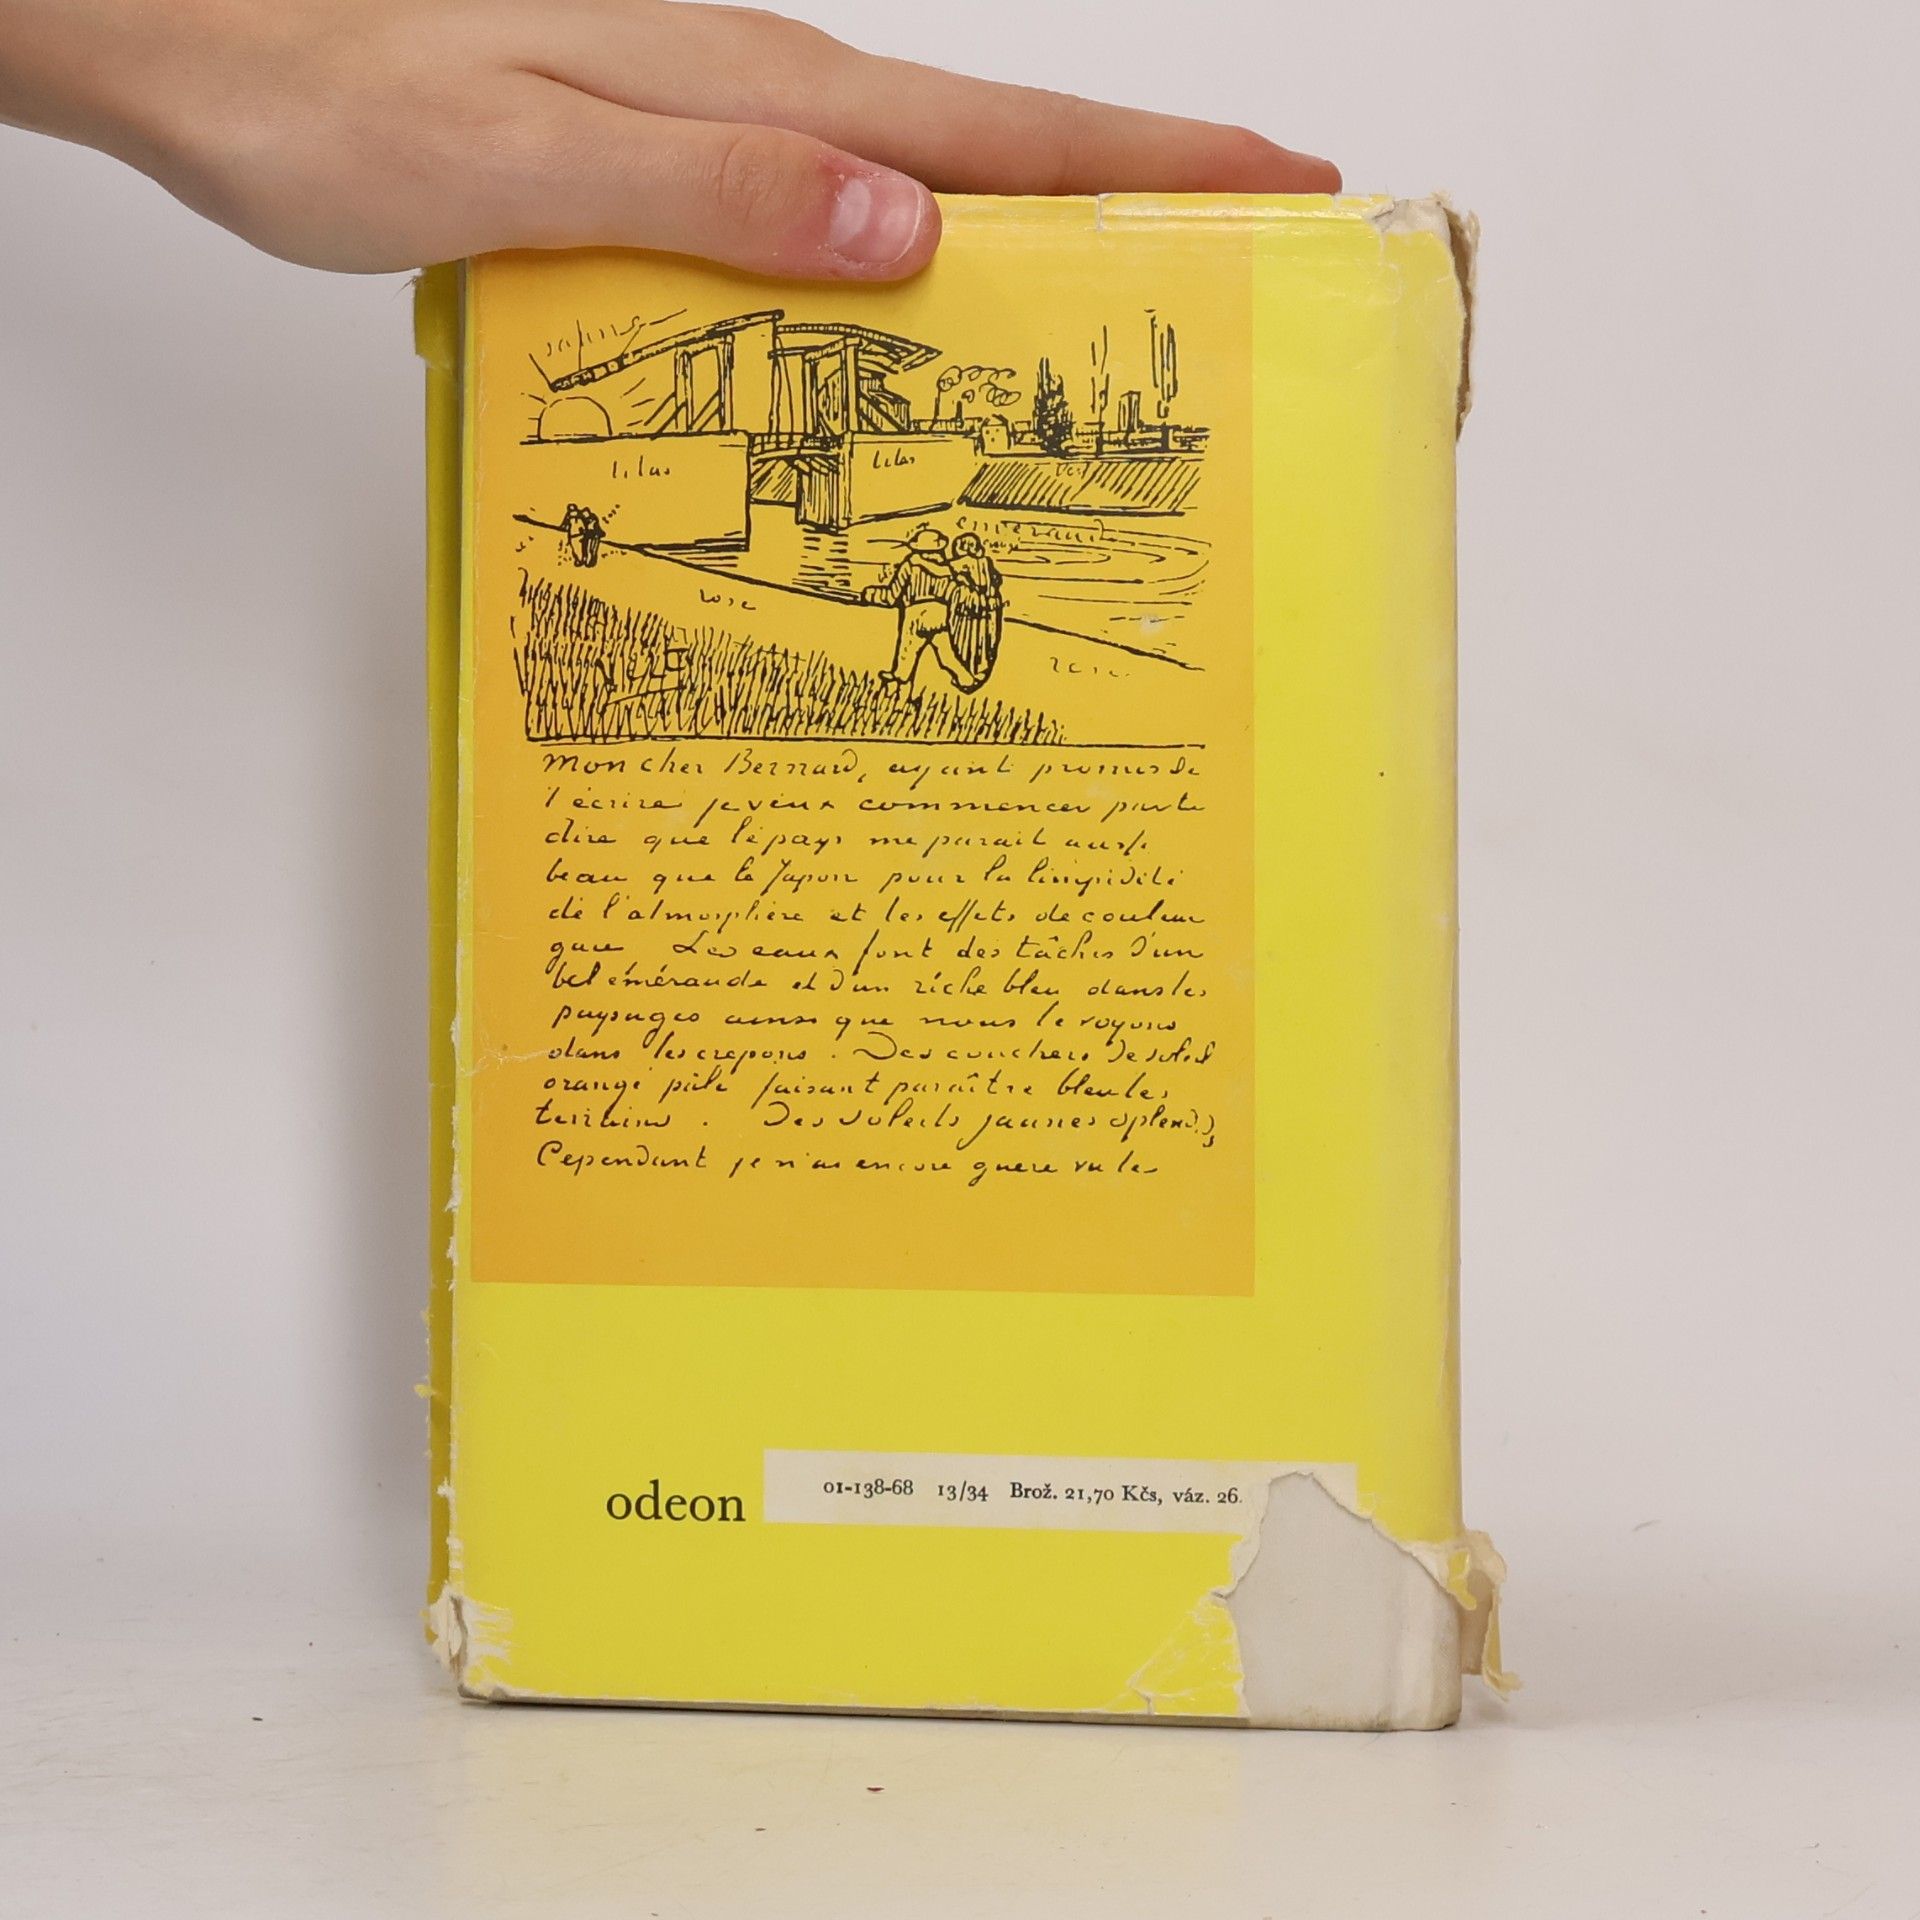 jaune
lilas lilas
vert
emeraude
rose
rose
mon cher Bernard, ayant promis de
t'écrire je veux commencer par te
dire que le pays me parait aussi
beau que le Japon pour la limpidité
de l'atmosphère et les effets de couleur
gaie Les eaux font des tâches d'un
bel éméraude et d'un riche bleu dans les
paysages ainsi que nous le voyons
dans les crepons. Des couchers de soleil
orangé pâle faisant paraître bleu les
terrains. Des soleils jaunes splendids
Cependant je n'ai encore guere vu le
odeon 01-138-68 13/34 Brož. 21,70 Kčs, váz. 26